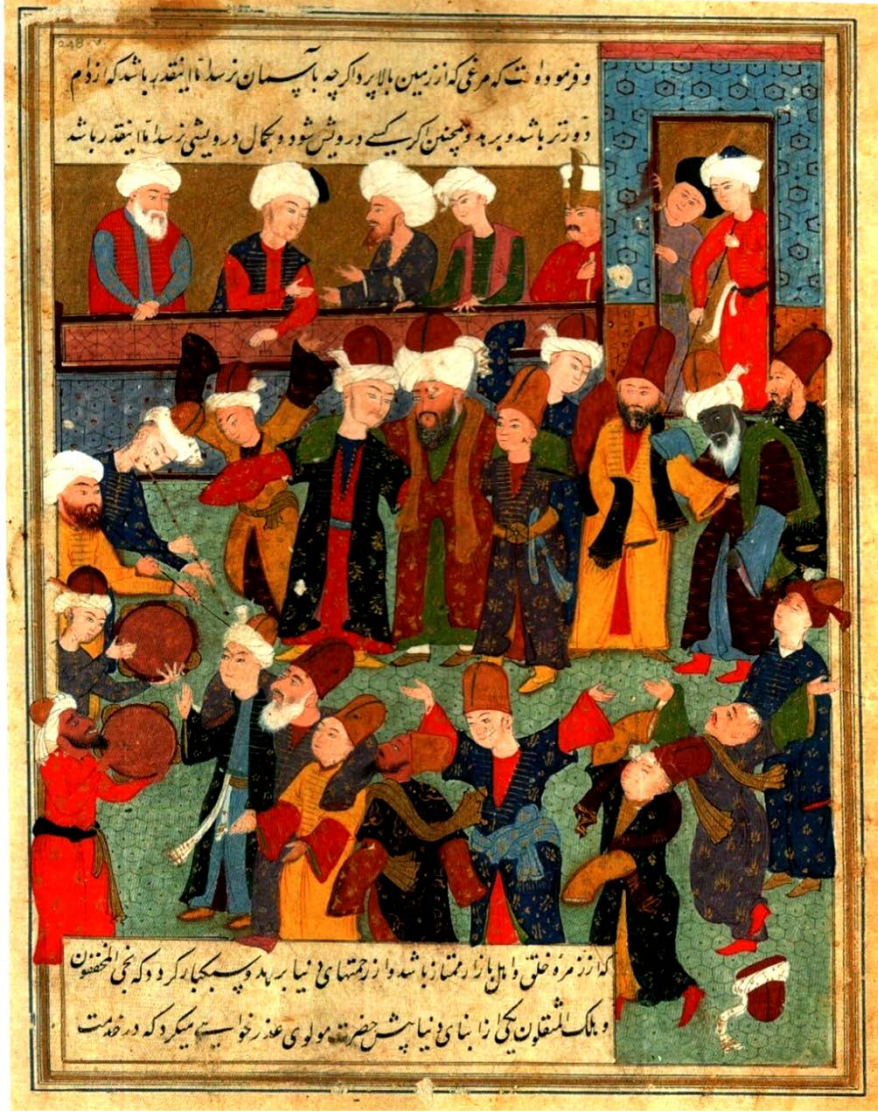 248 v.
و فرموده است که مرغی که از زمین بالا پرد اگر چه بآسمان نرسد اما اینقدر باشد که از دام
دورتر باشد و برهد و همچنین اگر کسی درویش شود و بکمال درویشی نرسد اما اینقدر باشد
که از زمره خلق و اهل بازار ممتاز باشد و از زحمتهای دنیا برهد و سبکبار گردد که نجی المخففون
و هلک المثقلون یکی از ابنای دنیا پیش حضرت مولوی عذر خواهی میکرد که در خدمت